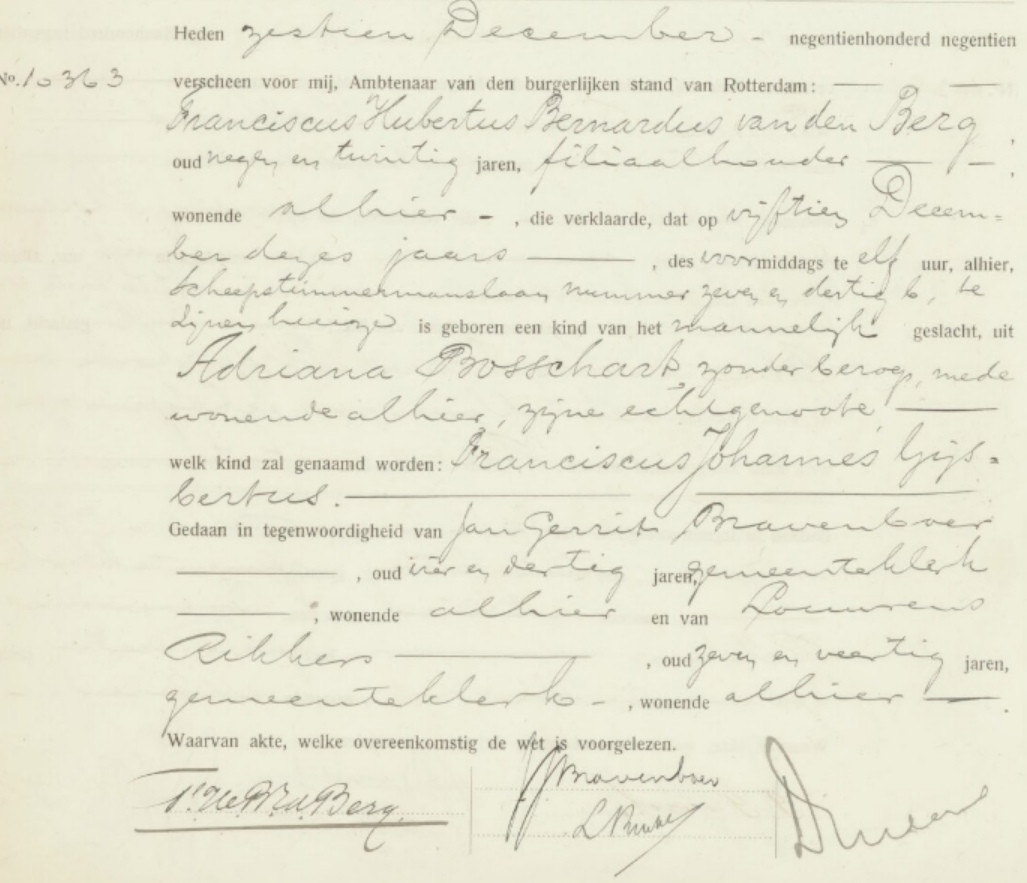 Heden zestien December - negentienhonderd negentien
No. 10363 verscheen voor mij, Ambtenaar van den burgerlijken stand van Rotterdam:
Franciscus Hubertus Bernardus van den Berg,
oud negen en twintig jaren, filiaalhouder
wonende alhier - , die verklaarde, dat op vijftien Decem=
ber dezes jaars , des voormiddags te elf uur, alhier,
Scheepstimmermanslaan nummer zeven en dertig b, te
zijnen huize is geboren een kind van het mannelijk geslacht, uit
Adriana Bosschart, zonder beroep, mede
wonende alhier, zijne echtgenoote
welk kind zal genaamd worden: Franciscus Johannes Gijs=
bertus.
Gedaan in tegenwoordigheid van Jan Gerrit Bravenboer
, oud vier en dertig jaren, gemeenteklerk
, wonende alhier en van Louwrens
Rikkers , oud zeven en veertig jaren,
gemeenteklerk - , wonende alhier
Waarvan akte, welke overeenkomstig de wet is voorgelezen.
Berg JGBravenboer